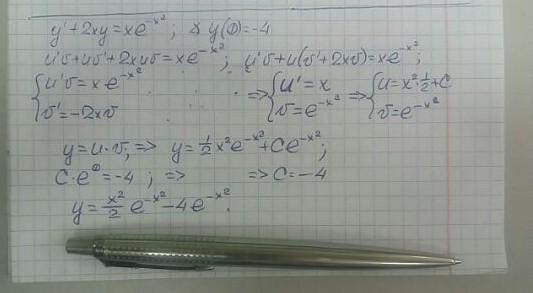 y' + 2xy = xe^{-x²}; y(0) = -4
u'v + uv' + 2xuv = xe^{-x²}; u'v + u(v' + 2xv) = xe^{-x²};
{ u'v = xe^{-x²} => { u' = x => { u = x²·½ + C
{ v' = -2xv { v = e^{-x²} { v = e^{-x²}
y = u·v, => y = ½x²e^{-x²} + Ce^{-x²};
C·e⁰ = -4; => => C = -4
y = x²/2 e^{-x²} - 4e^{-x²}.